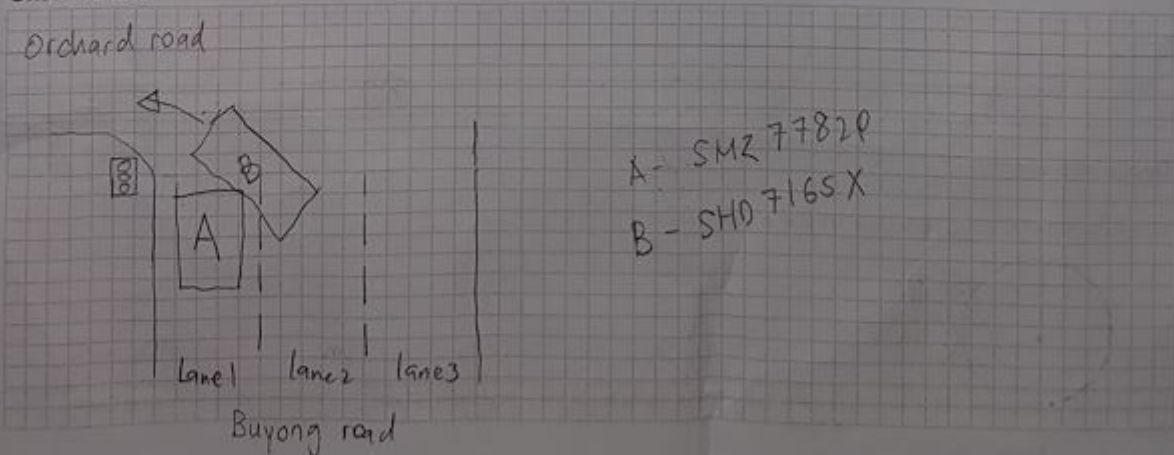 Orchard road
A - SMZ 7782P
B - SHD 7165X
B
A
Lane1 lane2 lane3
Buyong road